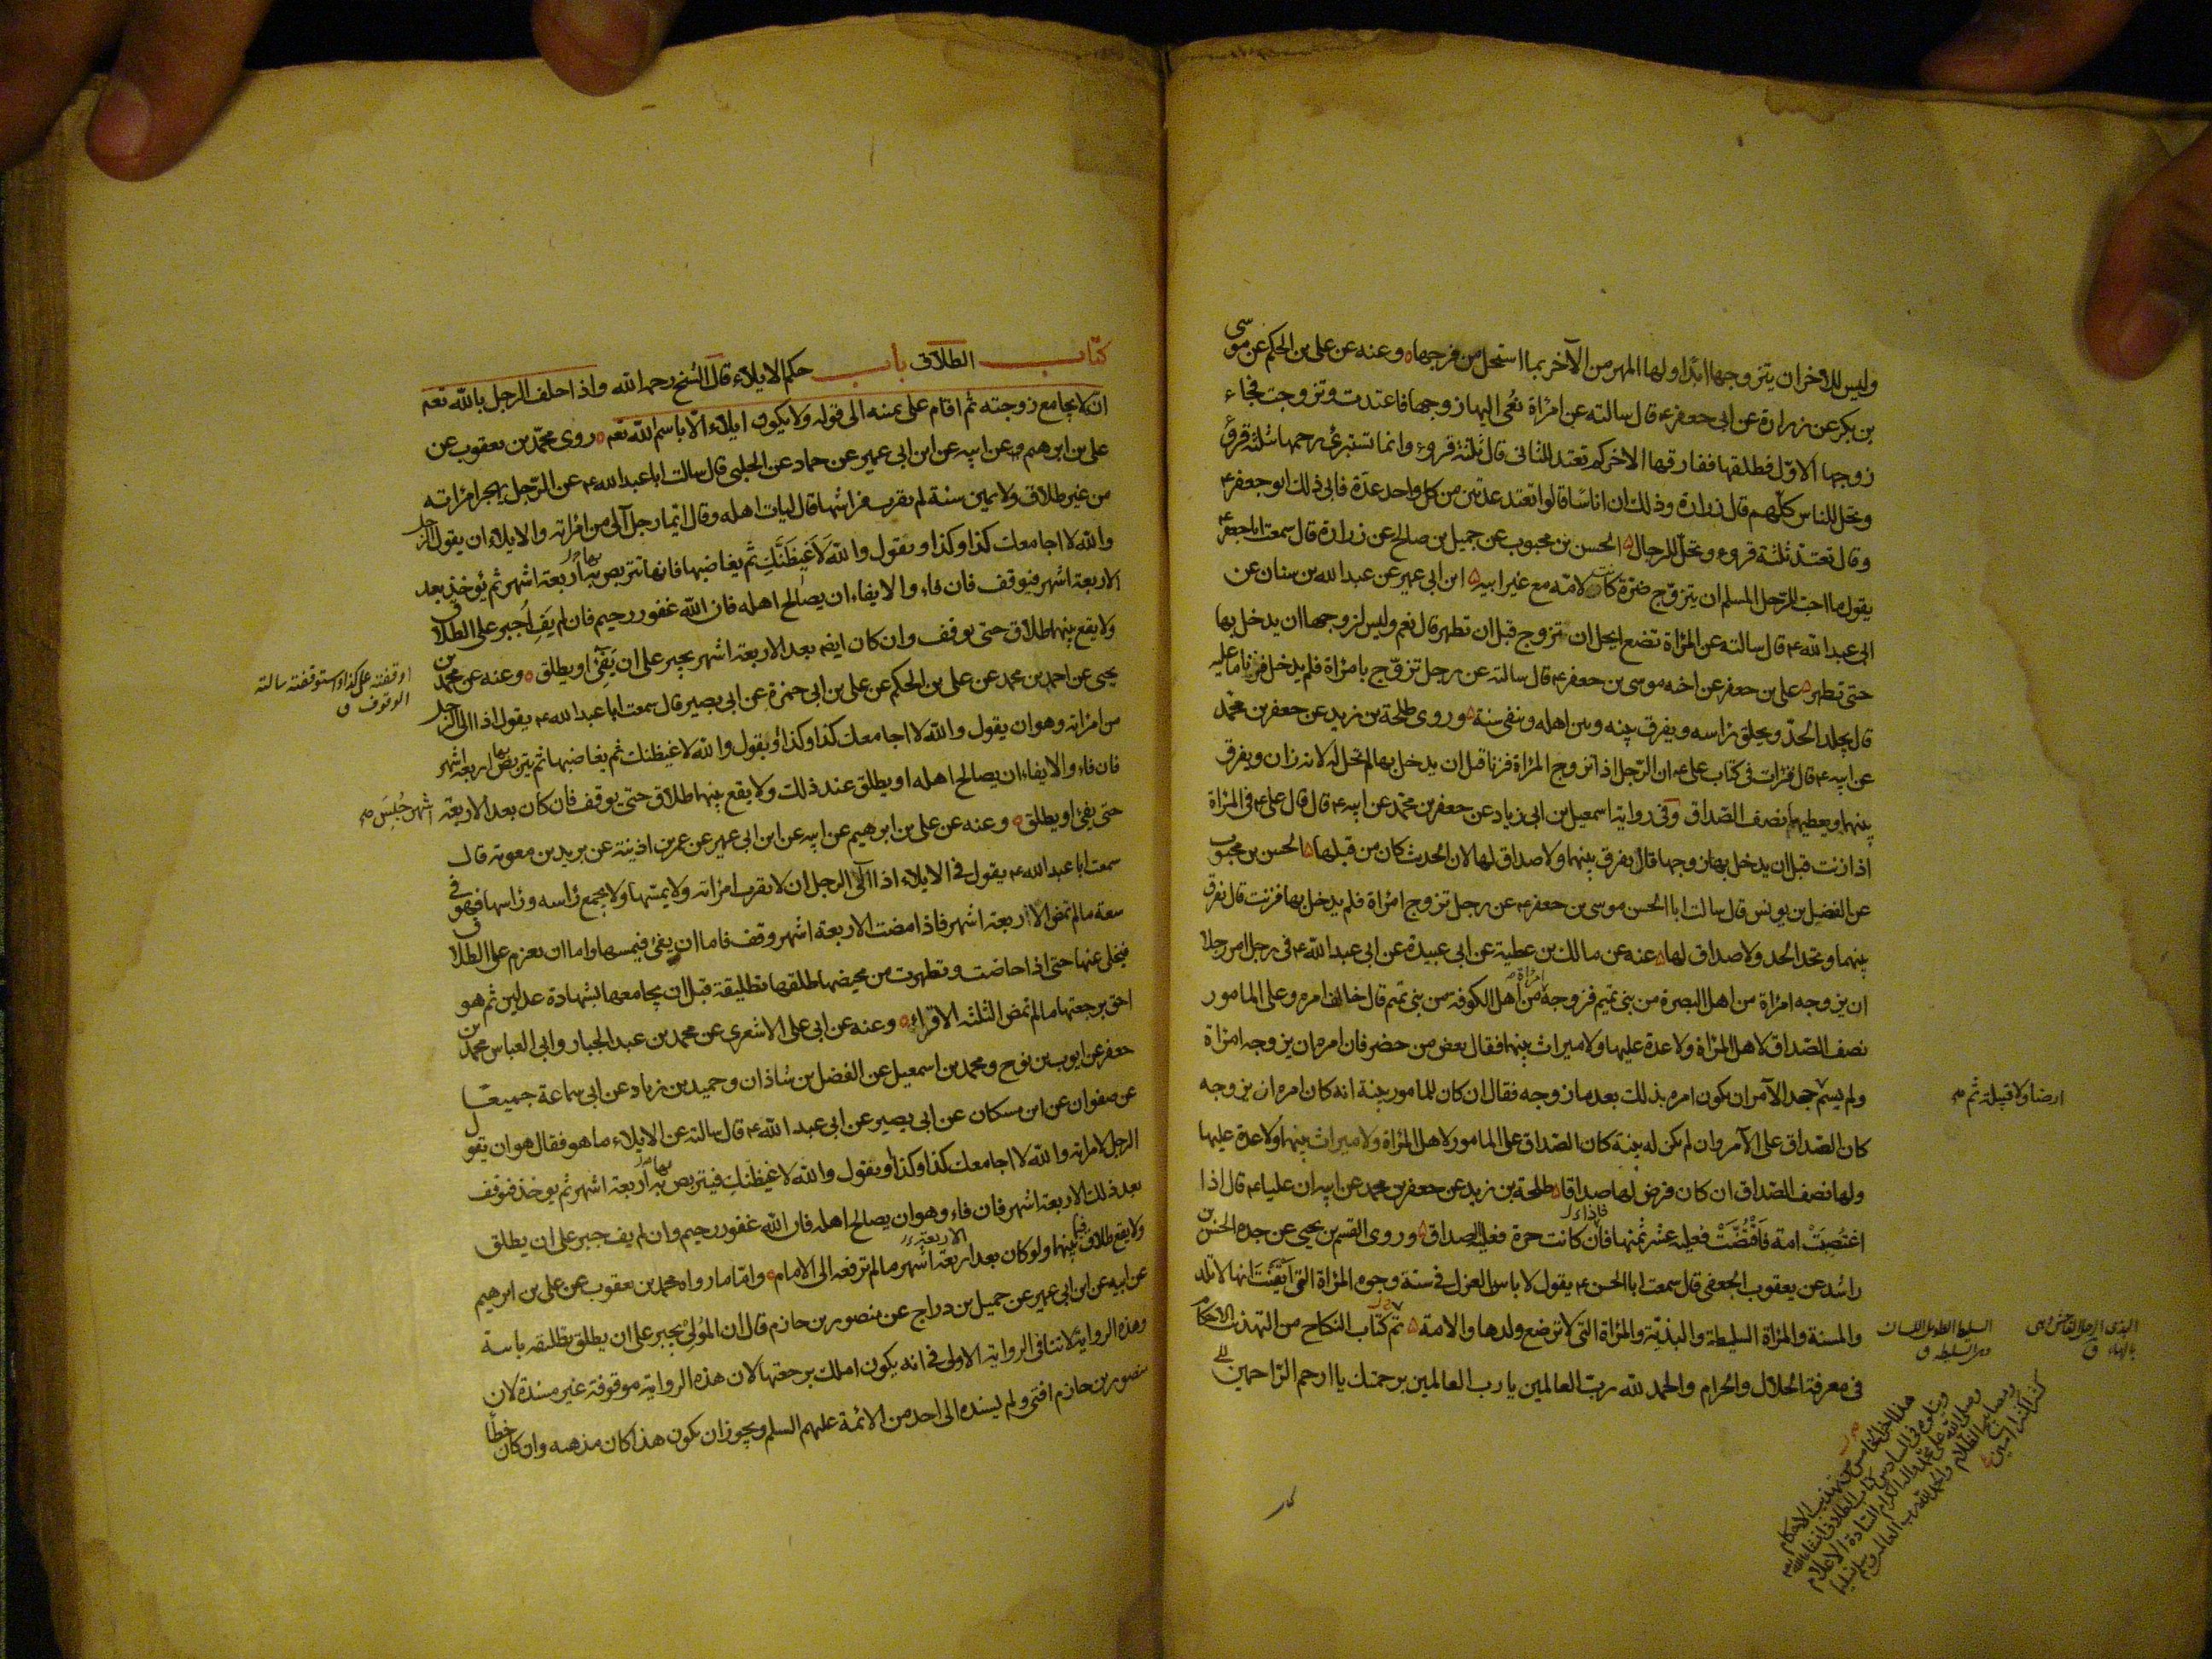 وليس للآخر ان يتزوجها ابدا ولها المهر من الآخر بما استحل من فرجها وعنه عن علي بن الحكم عن موسى
بن بكر عن زرارة عن ابي جعفر ع قال سالته عن امراة نعي اليها زوجها فاعتدت وتزوجت فجاء
زوجها الاول فطلقها ففارقها الاخر كم تعتد للثاني قال ثلثة قروء وانما تستبرئ رحمها ثلثة قروء
وتحل للناس كلهم قال زرارة وذلك ان اناسا قالوا تعتد عدتين من كل واحد عدة فابى ذلك ابو جعفر ع
وقال تعتد ثلثة قروء وتحل للرجال الحسن بن محبوب عن جميل بن صالح عن زرارة قال سمعت ابا جعفر ع
يقول ما احب للرجل المسلم ان يتزوج ضرة كانت لامه مع غير ابيه ابن ابي عمير عن عبد الله بن سنان عن
ابي عبد الله ع قال سالته عن المراة تضع ايحل ان تزوج قبل ان تطهر قال نعم وليس لزوجها ان يدخل بها
حتى تطهر علي بن جعفر عن اخيه موسى بن جعفر ع قال سالته عن رجل تزوج بامراة فلم يدخل فزنا ما عليه
قال يجلد الحد ويحلق راسه ويفرق بينه وبين اهله وينفى سنة وروى طلحة بن زيد عن جعفر بن محمد
عن ابيه ع قال قرات في كتاب علي ع ان الرجل اذا تزوج المراة فزنا قبل ان يدخل بها لم تحل له لانه زان ويفرق
بينهما ويعطيها نصف الصداق وفي رواية اسمعيل بن ابي زياد عن جعفر بن محمد عن ابيه ع قال قال علي ع في المراة
اذا زنت قبل ان يدخل بها زوجها قال يفرق بينهما ولا صداق لها لان الحدث كان من قبلها الحسن بن محبوب
عن الفضل بن يونس قال سالت ابا الحسن موسى بن جعفر ع عن رجل تزوج امراة فلم يدخل بها فزنت قال يفرق
بينهما وتحد الحد ولا صداق لها عنه عن مالك بن عطية عن ابي عبيدة عن ابي عبد الله ع في رجل امر رجلا
ان يزوجه امراة من اهل البصرة من بني تميم فزوجه امراة من اهل الكوفة من بني تميم قال خالف امره وعلى المامور
نصف الصداق لاهل المراة ولا عدة عليها ولا ميراث بينهما فقال بعض من حضر فان امره ان يزوجه امراة
ولم يسم ثم جحد الآمر ان يكون امره بذلك بعد ما زوجه فقال ان كان للمامور بينة انه كان امره ان يزوجه
ارضا ولا قبيلة ثم صح
كان الصداق على الآمر وان لم يكن له بينة كان الصداق على المامور لاهل المراة ولا ميراث بينهما ولا عدة عليها
ولها نصف الصداق ان كان فرض لها صداقا طلحة بن زيد عن جعفر بن محمد عن ابيه ان عليا ع قال اذا
اغتصبت امة فاقتضت فعليه عشر ثمنها فان كانت حرة فعليه الصداق وروى القسم بن يحيى عن جده الحسن بن
راشد عن يعقوب الجعفي قال سمعت ابا الحسن ع يقول لا باس بالعزل في ستة وجوه المراة التي ايقنت انها لا تلد
والمسنة والمراة السليطة والبذية والمراة التي لا ترضع ولدها والامة تم كتاب النكاح من التهذيب الاحكام
في معرفة الحلال والحرام والحمد لله رب العالمين يا رب العالمين برحمتك يا ارحم الراحمين
هذا اخر الجزء الخامس من تهذيب الاحكام
ويتلوه في السادس كتاب الطلاق انشاء الله تعالى
وصلى الله على محمد واله الكرام السادة الاعلام
ومصابيح الظلام والحمد لله رب العالمين
كتاب الطلاق باب حكم الايلاء قال الشيخ رحمه الله واذا حلف الرجل بالله تعم
ان لا يجامع زوجته ثم اقام على يمينه الى قوله ولا يكون ايلاء الا باسم الله تعم روى محمد بن يعقوب عن
علي بن ابرهيم عن ابيه عن ابن ابي عمير عن حماد عن الحلبي قال سالت ابا عبد الله ع عن الرجل يهجر امراته
من غير طلاق ولا يمين سنة لم يقرب فراشها قال ليات اهله وقال ايما رجل آلى من امراته والايلاء ان يقول الرجل
والله لا اجامعك كذا وكذا ويقول والله لاغيظنك ثم يغاضبها فانها تتربص بها اربعة اشهر ثم يؤخذ بعد
الاربعة اشهر فيوقف فان فاء والايفاء ان يصالح اهله فان الله غفور رحيم فان لم يف اجبر على الطلاق
ولا يقع بينهما طلاق حتى يوقف وان كان ايضا بعد الاربعة اشهر يجبر على ان يفئ او يطلق وعنه عن محمد بن
اوقفته على كذا واستوقفته سالته
الوقوف ق
يحيى عن احمد بن محمد عن علي بن الحكم عن علي بن ابي حمزة عن ابي بصير قال سمعت ابا عبد الله ع يقول اذا الى الرجل
من امراته وهو ان يقول والله لا اجامعك كذا وكذا او يقول والله لاغيظنك ثم يغاضبها ثم يتربص بها اربعة اشهر
فان فاء والايفاء ان يصالح اهله او يطلق عند ذلك ولا يقع بينهما طلاق حتى يوقف فان كان بعد الاربعة اشهر حبس صح
حتى يفئ او يطلق وعنه عن علي بن ابرهيم عن ابيه عن ابن ابي عمير عن عمر بن اذينة عن بريد بن معوية قال
سمعت ابا عبد الله ع يقول في الايلاء اذا الى الرجل ان لا يقرب امراته ولا يمسها ولا يجمع راسه وراسها فهو في
سعة ما لم تمض الاربعة اشهر فاذا مضت الاربعة اشهر وقف فاما ان يفئ فيمسها واما ان يعزم على الطلاق
فيخلي عنها حتى اذا حاضت وتطهرت من محيضها طلقها تطليقة قبل ان يجامعها بشهادة عدلين ثم هو
احق برجعتها ما لم تمض الثلثة الاقراء وعنه عن ابي علي الاشعري عن محمد بن عبد الجبار وابي العباس محمد بن
جعفر عن ايوب بن نوح ومحمد بن اسمعيل عن الفضل بن شاذان وحميد بن زياد عن ابي سماعة جميعا
عن صفوان عن ابن مسكان عن ابي بصير عن ابي عبد الله ع قال سالته عن الايلاء ما هو فقال هو ان يقول
الرجل لامراته والله لا اجامعك كذا وكذا او يقول والله لاغيظنك فيتربص بها اربعة اشهر ثم يوخذ فيوقف
بعد ذلك الاربعة اشهر فان فاء وهو ان يصالح اهله فان الله غفور رحيم وان لم يف جبر على ان يطلق
ولا يقع طلاق فيما بينهما ولو كان بعد الاربعة اشهر ما لم ترفعه الى الامام واما ما رواه محمد بن يعقوب عن علي بن ابرهيم
عن ابيه عن ابن ابي عمير عن جميل بن دراج عن منصور بن حازم قال ان المؤلي يجبر على ان يطلق تطليقة باينة
وهذه الرواية لا تنافي الرواية الاولى في انه يكون املك برجعتها لان هذه الرواية موقوفة غير مسندة لان
منصور بن حازم افتى ولم يسنده الى احد من الائمة عليهم السلم ويجوز ان يكون هذا كان مذهبه وان كان خطأ